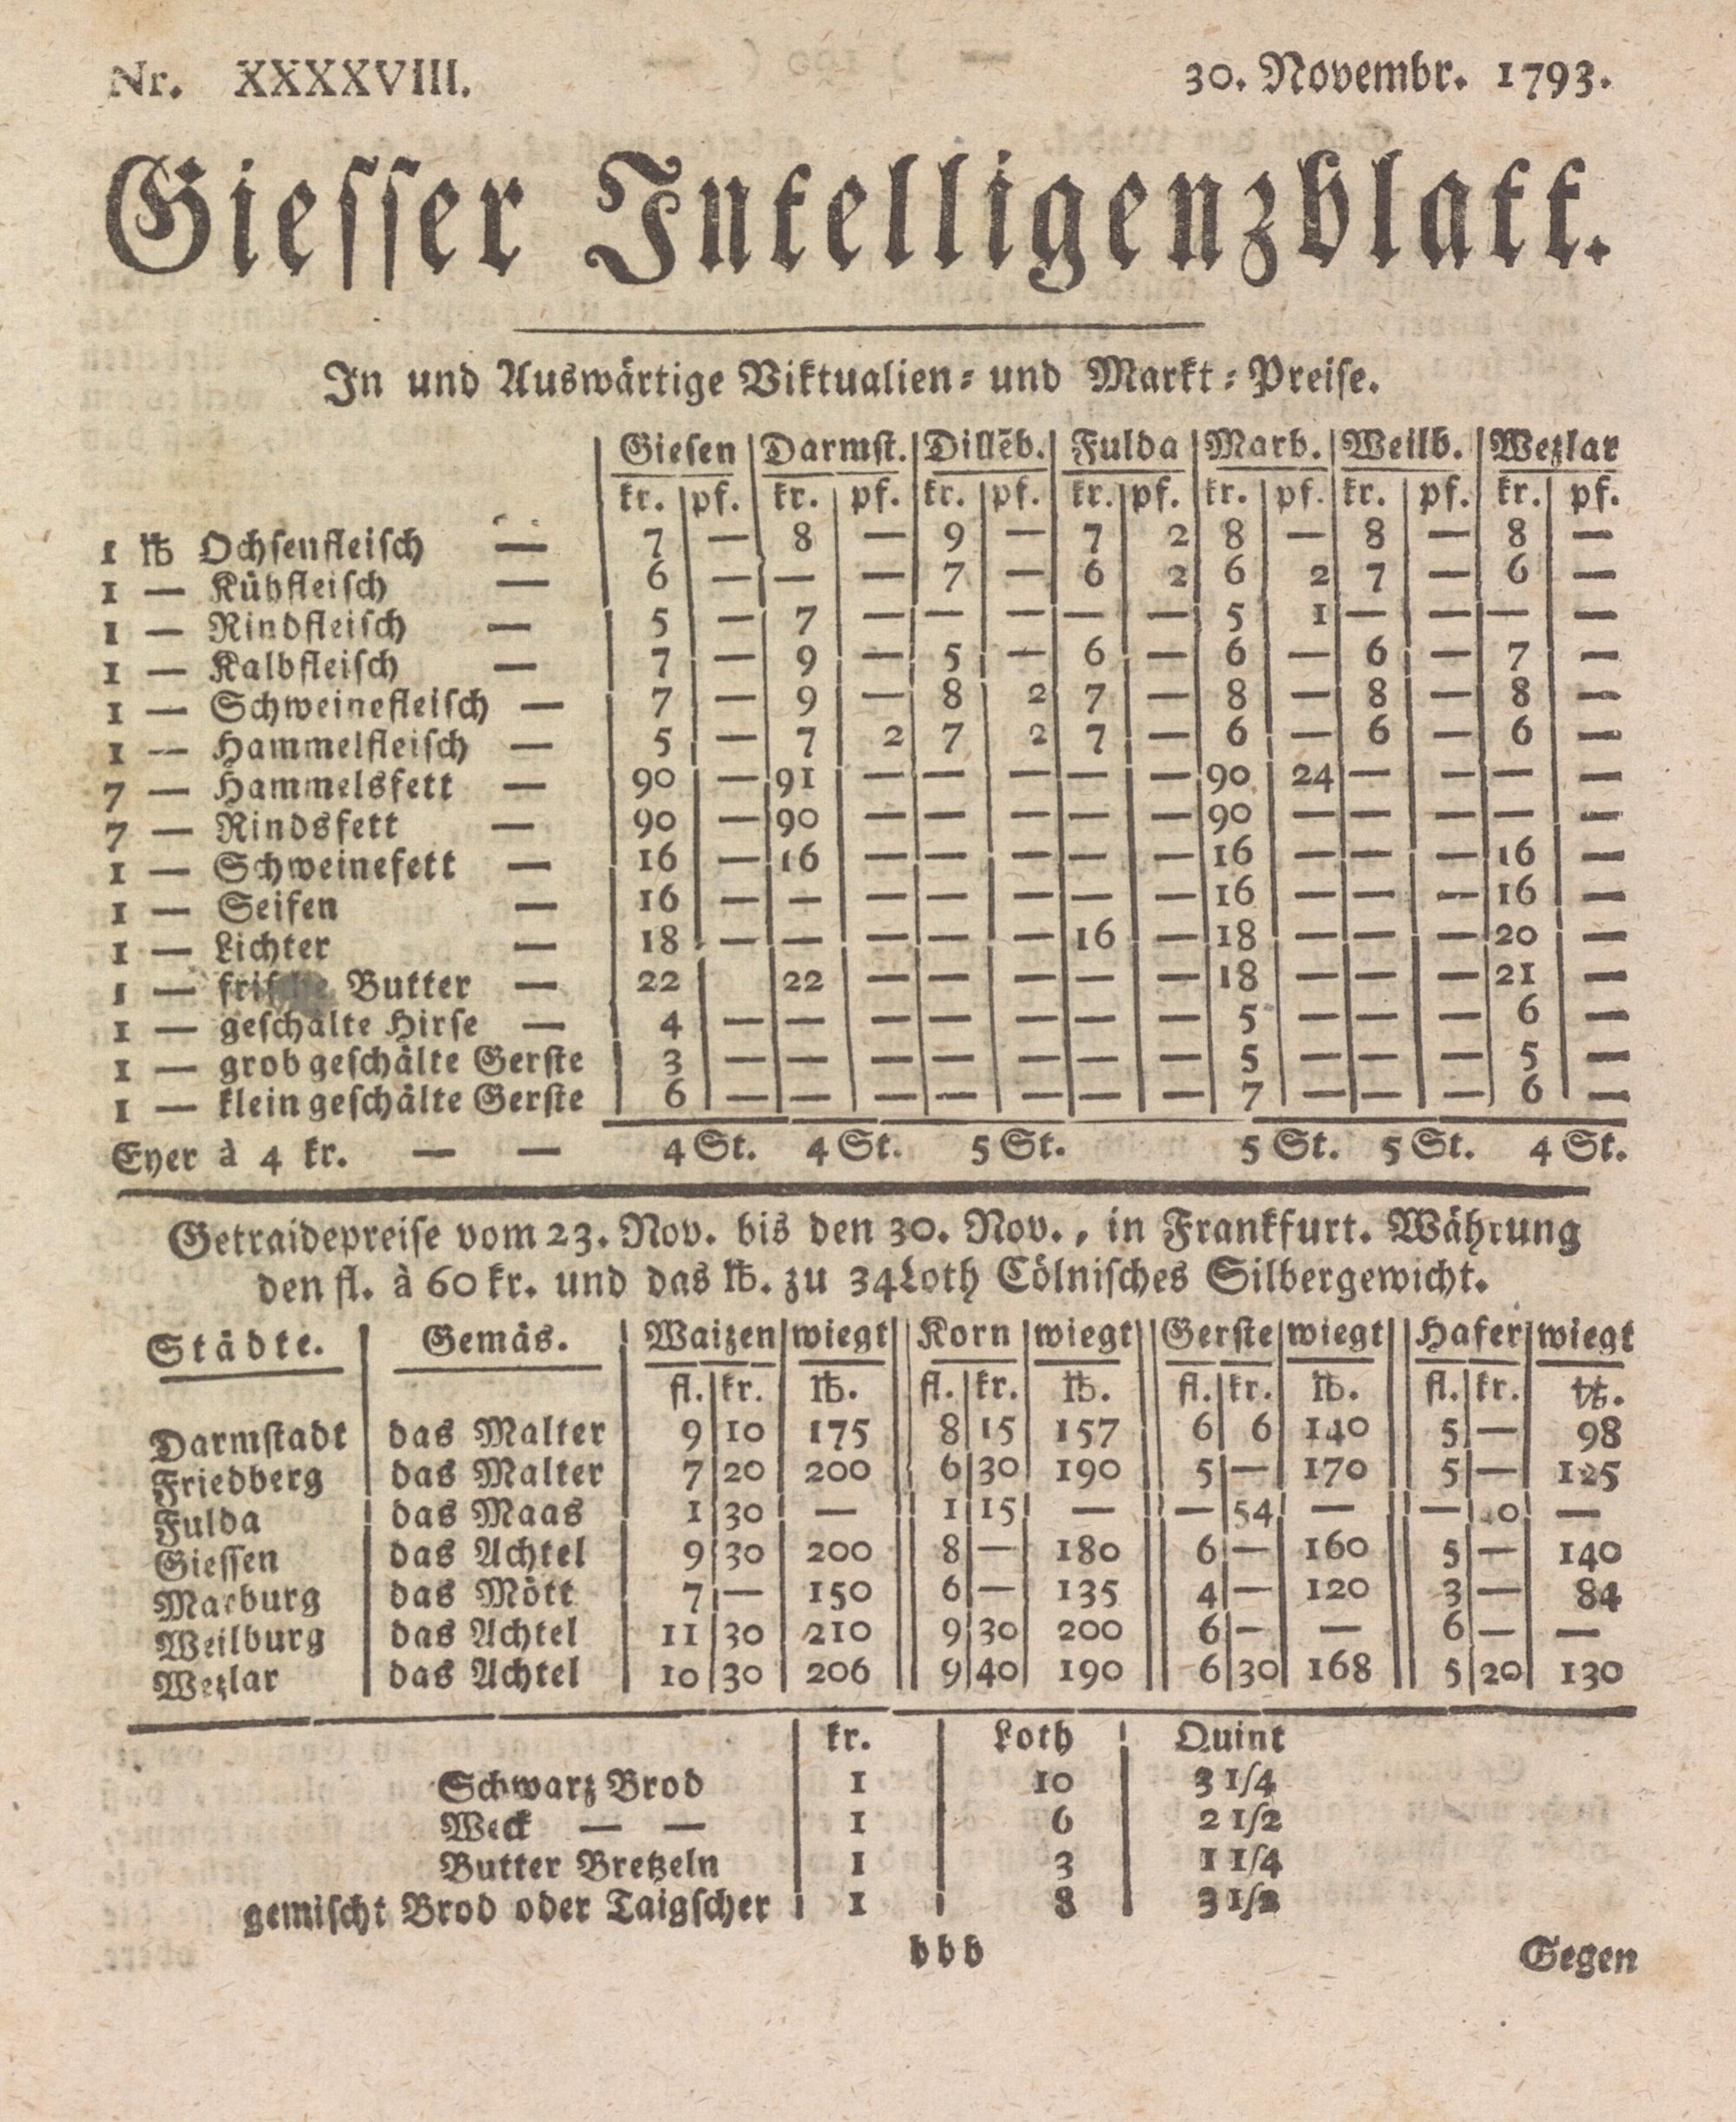 Nr. XXXXVIII. 30. Novembr. 1793.
Giesser Intelligenzblatt.
In und Auswärtige Viktualien- und Markt-Preise.
Giesen Darmst. Dillēb. Fulda Marb. Weilb. Wetzlar
kr. pf. kr. pf. kr. pf. kr. pf. kr. pf. kr. pf. kr. pf.
1 ℔ Ochsenfleisch — 7 — 8 — 9 — 7 2 8 — 8 — 8 —
1 — Kühfleisch — 6 — — — 7 — 6 2 6 2 7 — 6 —
1 — Rindfleisch — 5 — 7 — — — — — 5 1 — — — —
1 — Kalbfleisch — 7 — 9 — 5 — 6 — 6 — 6 — 7 —
1 — Schweinefleisch — 7 — 9 — 8 2 7 — 8 — 8 — 8 —
1 — Hammelfleisch — 5 — 7 2 7 2 7 — 6 — 6 — 6 —
7 — Hammelsfett — 90 — 91 — — — — — 90 24 — — — —
7 — Rindsfett — 90 — 90 — — — — — 90 — — — — —
1 — Schweinefett — 16 — 16 — — — — — 16 — — — 16 —
1 — Seifen — 16 — — — — — — — 16 — — — 16 —
1 — Lichter — 18 — — — — — 16 — 18 — — — 20 —
1 — frische Butter — 22 22 — — — — — 18 — — — 21 —
1 — geschälte Hirse — 4 — — — — — — — 5 — — — 6 —
1 — grob geschälte Gerste 3 — — — — — — — 5 — — — 5 —
1 — klein geschälte Gerste 6 — — — — — — — 7 — — — 6 —
Eyer à 4 kr. — — 4 St. 4 St. 5 St. 5 St. 5 St. 4 St.
Getraidepreise vom 23. Nov. bis den 30. Nov., in Frankfurt. Währung
den fl. à 60 kr. und das ℔. zu 34 Loth Cölnisches Silbergewicht.
Städte. Gemäs. Waizen wiegt Korn wiegt Gerste wiegt Hafer wiegt
fl. kr. ℔. fl. kr. ℔. fl. kr. ℔. fl. kr. ℔.
Darmstadt das Malter 9 10 175 8 15 157 6 6 140 5 — 98
Friedberg das Malter 7 20 200 6 30 190 5 — 170 5 — 125
Fulda das Maas 1 30 — 1 15 — — 54 — — —
Giessen das Achtel 9 30 200 8 — 180 6 — 160 5 — 140
Marburg das Mött 7 — 150 6 — 135 4 — 120 3 — 84
Weilburg das Achtel 11 30 210 9 30 200 6 — — 6 — —
Wetzlar das Achtel 10 30 206 9 40 190 6 30 168 5 20 130
kr. Loth Quint
Schwarz Brod 1 10 3 1/4
Weck — — 1 6 2 1/2
Butter Bretzeln 1 3 1 1/4
gemischt Brod oder Taigscher 1 8 3 1/2
bbb Gegen